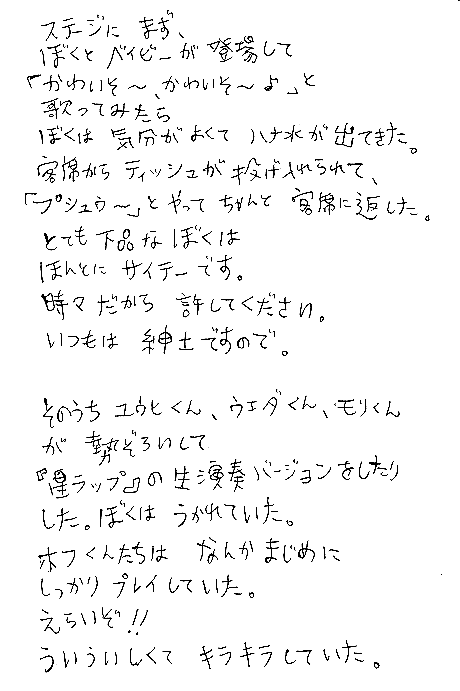 ステージに まず、
ぼくと ベイビーが 登場して
「かわいそ〜、かわいそ〜よ」と
歌ってみたら
ぼくは 気分がよくて ハナ水が出てきた。
客席から ティッシュが投げ入れられて、
「プシュウ〜」とやって ちゃんと 客席に返した。
とても下品なぼくは
ほんとに サイテーです。
時々だから 許してください。
いつもは 紳士ですので。
そのうち ユウヒくん、ウエダくん、モリくん
が 勢ぞろいして
『星ラップ』の生演奏バージョンをしたり
した。ぼくは うかれていた。
ホフくんたちは なんか まじめに
しっかり プレイしていた。
えらいぞ!!
ういういしくて キラキラしていた。